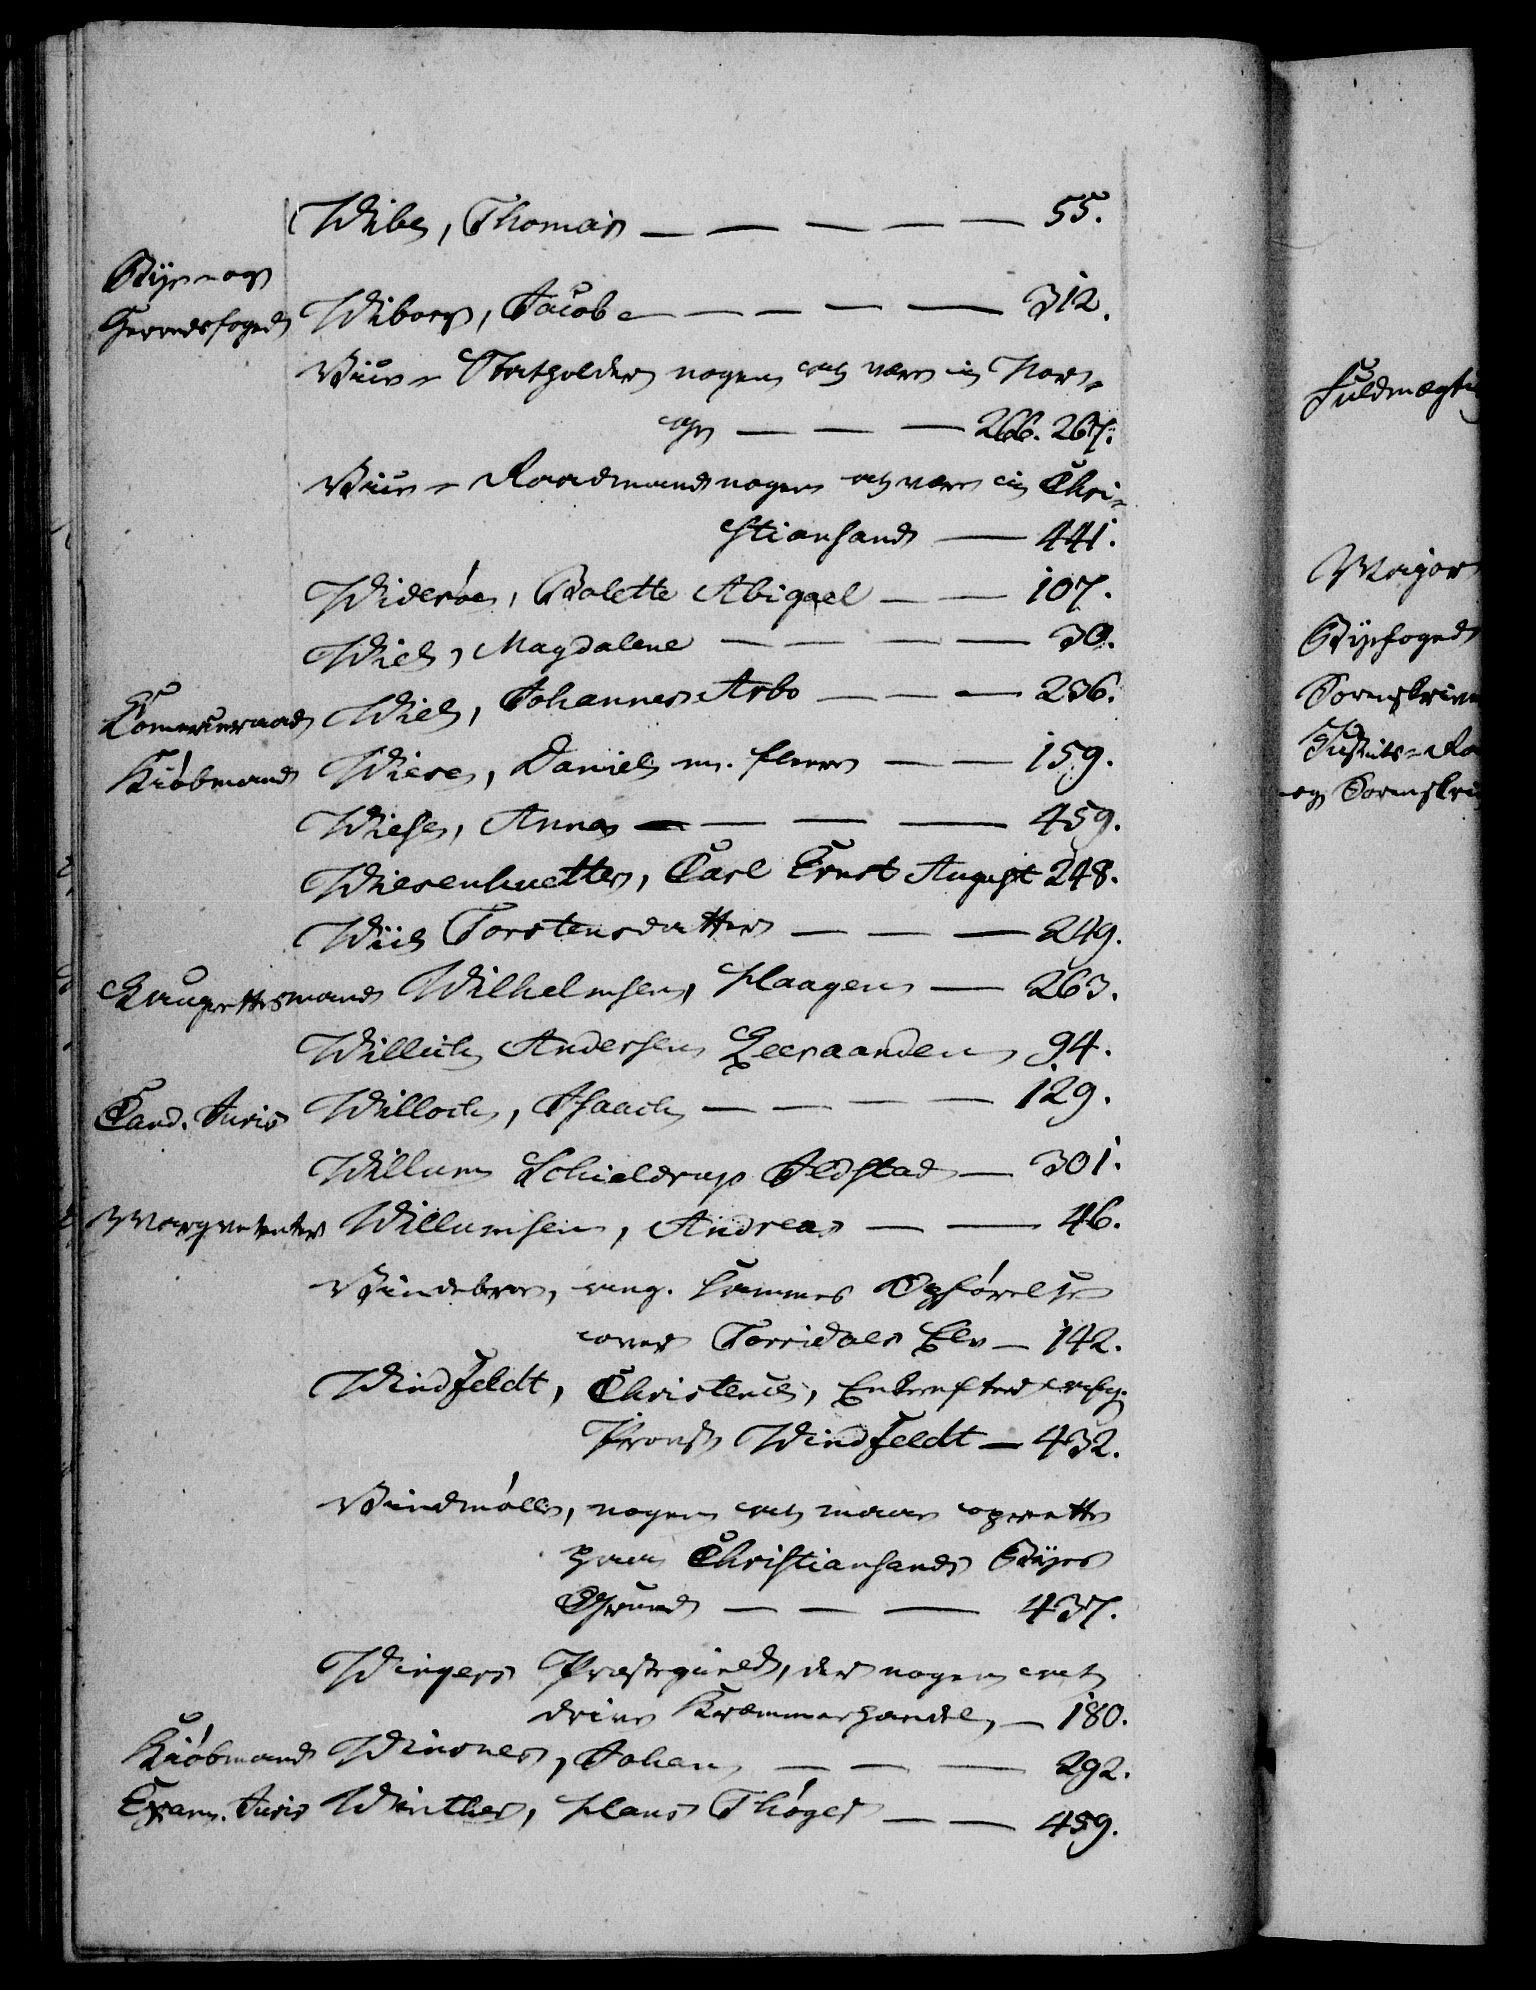 Wibe, Thomas — — — — 55.
Bye- og
Herredsfoged Wiborg, Jacob — — — — 312.
Vice-Statholder nogen at være i Nor-
ge — — — 266. 267.
Vice-Raadmand nogen at være i Chri-
stiansand — 441.
Widerøe, Bolette Abigael — — 107.
Wiel, Magdalene — — — — 30.
Commerceraad Wiel, Johannes Arbo — — — 236.
Kiøbmand Wiese, Daniel m. fleere — — 159.
Wiese, Anna — — — — 459.
Wiesenhuetter, Carl Ernst August 248.
Wiil Torstensdatter — — — 249.
Laugrettesmand Wilhelmsen, Haagen — 263.
Willich Andersen Leeraanden 94.
Cand. Juris Willoch, Isaach — — — — 129.
Willum Schieldrup Ildstad — 301.
Marqvetenter Willumsen, Andreas — — 46.
Vindebroe, ang. sammes Opførelse
over Torridals Elv — 142.
Windfeldt, Christence, Enke efter afg.
Provst Windfeldt — 432.
Vindmølle, nogen at maae oprette
paa Christiansands Byes
Grund — — — 437.
Wingers Præstegield, der nogen at
drive Kræmmerhandel — 180.
Kiøbmand Winsnes, Johan — — — 292.
Exam. Juris Winther, Hans Thøger — — 459.
Fuldmægtig
Major
Byefoged
Sorenskriver
Justits-Ra
og Sorenskri